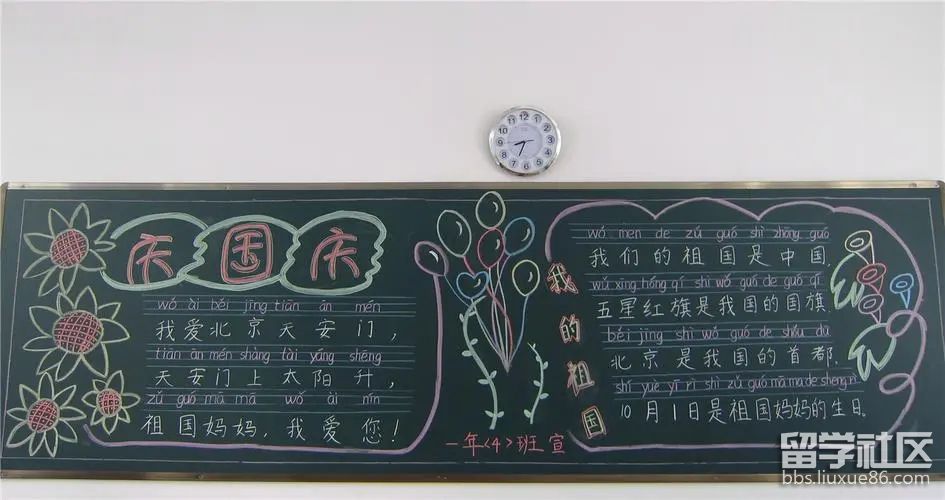 12
1
2
3
4
5
6
7
8
9
10
11
庆国庆
wǒ ài běi jīng tiān ān mén
我爱北京天安门,
tiān ān mén shàng tài yáng shēng
天安门上太阳升,
zǔ guó mā mā wǒ ài nín
祖国妈妈,我爱您!
一年〈4〉班宣
我的祖国
wǒ men de zǔ guó shì zhōng guó
我们的祖国是中国.
wǔ xīng hóng qí shì wǒ guó de guó qí
五星红旗是我国的国旗.
běi jīng shì wǒ guó de shǒu dū
北京是我国的首都.
shí yuè yī rì shì zǔ guó mā ma de shēng rì
10月1日是祖国妈妈的生日.
留学社区
bbs.liuxue86.com